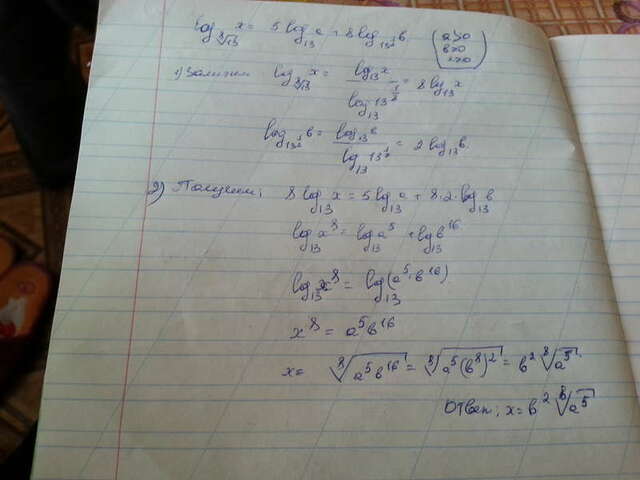 log_{\sqrt[8]{13}} x = 5 log_{13} a + 8 log_{13^{\frac{1}{2}}} b. (a>0 b>0 x>0)
1) Запишем log_{\sqrt[8]{13}} x = \frac{log_{13} x}{log_{13} 13^{\frac{1}{8}}} = 8 log_{13} x
log_{13^{\frac{1}{2}}} b = \frac{log_{13} b}{log_{13} 13^{\frac{1}{2}}} = 2 log_{13} b.
2) Получим; 8 log_{13} x = 5 log_{13} a + 8·2·log_{13} b
log_{13} x^8 = log_{13} a^5 + log_{13} b^{16}
log_{13} x^8 = log_{13} (a^5·b^{16})
x^8 = a^5 b^{16}
x = \sqrt[8]{a^5 b^{16}} = \sqrt[8]{a^5 (b^8)^2} = b^2 \sqrt[8]{a^5}.
Ответ; x = b^2 \sqrt[8]{a^5}